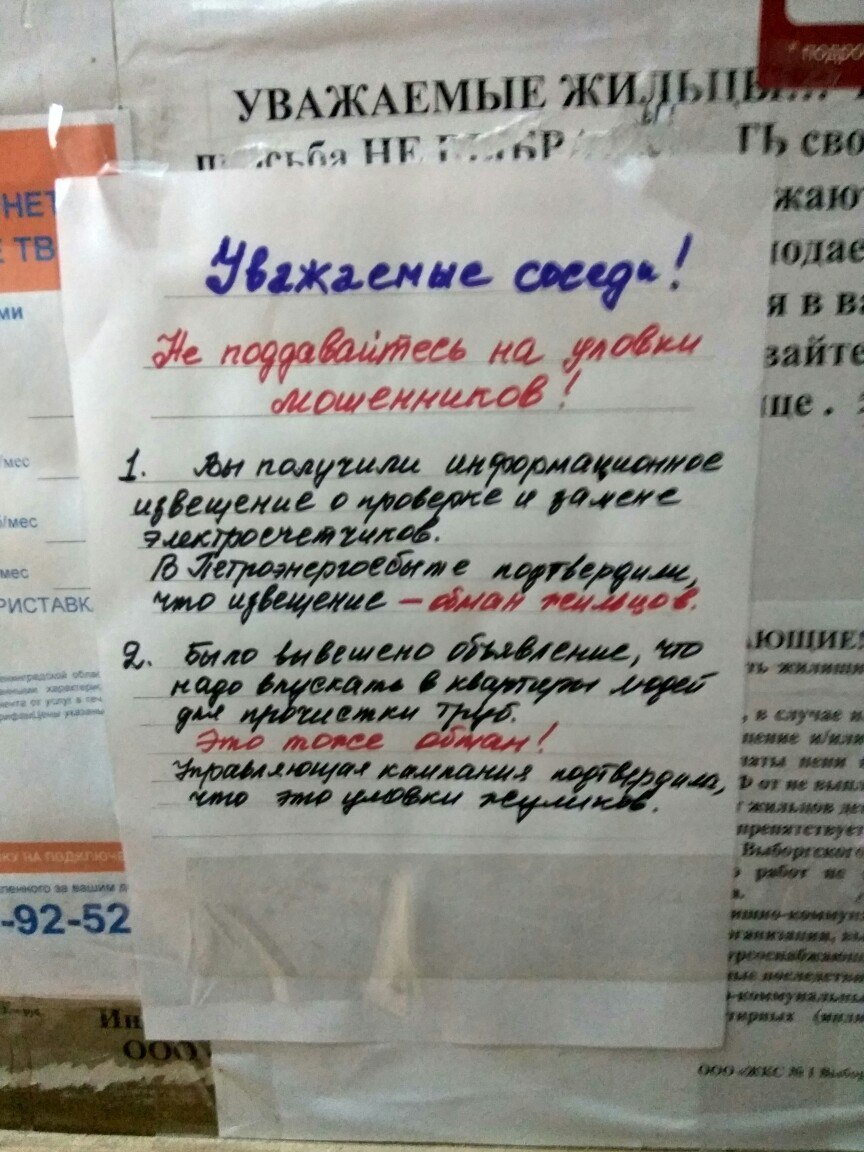 * подро
УВАЖАЕМЫЕ ЖИЛЬЦЫ
НЕ
ТЬ сво
жают
подае
я в ва
вайте
ще.
НЕТ
Е ТВ
ми
/мес
б/мес
мес
РИСТАВК
Уважаемые соседи!
Не поддавайтесь на уловки
мошенников!
1. Вы получили информационное
извещение о проверке и замене
электросчетчиков.
В Петроэнергосбыте подтвердили,
что извещение – обман жильцов.
2. Было вывешено объявление, что
надо впускать в квартиры людей
для прочистки труб.
Это тоже обман!
Управляющая компания подтвердила,
что это уловки жуликов.
КУ НА ПОДКЛЮЧЕ
ленного за вашим д
-92-52
Ин
ООО
АЮЩИЕ!
ть жилищн
, в случае н
пение и/или
латы пени
от не выпл
жильцов
препятствует
Выборгского
работ не
ищно-коммун
рганизации, вы
урсоснабжающ
ые последстви
-коммунальны
тирных (жил
ООО «ЖКС № 1 Выбор